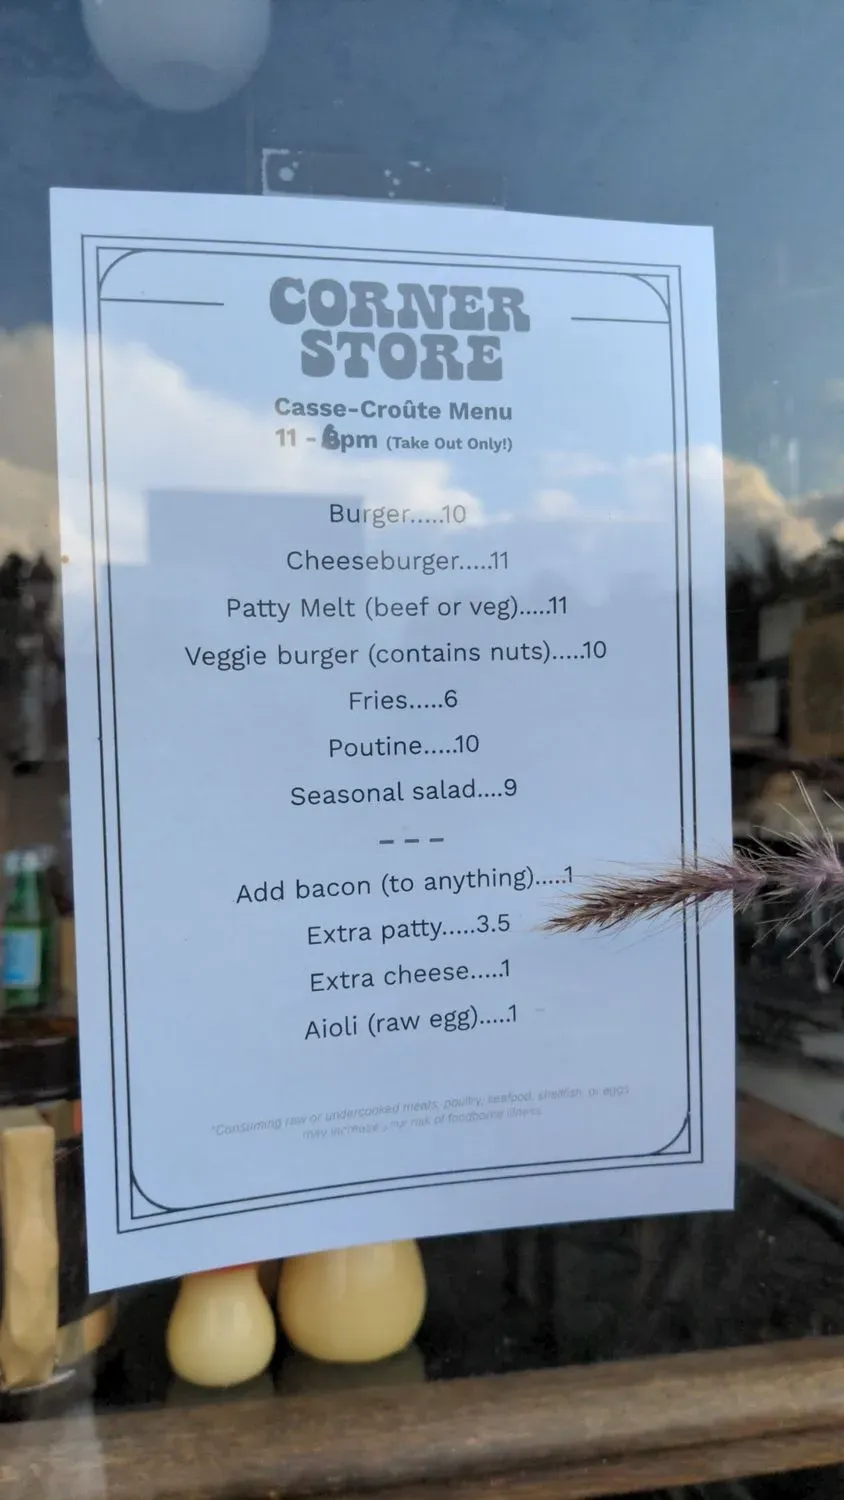 CORNER
STORE
Casse-Croûte Menu
11 - 6pm (Take Out Only!)
Burger.....10
Cheeseburger.....11
Patty Melt (beef or veg).....11
Veggie burger (contains nuts).....10
Fries.....6
Poutine.....10
Seasonal salad....9
---
Add bacon (to anything).....1
Extra patty.....3.5
Extra cheese.....1
Aioli (raw egg).....1
*Consuming raw or undercooked meats, poultry, seafood, shellfish, or eggs
may increase your risk of foodborne illness